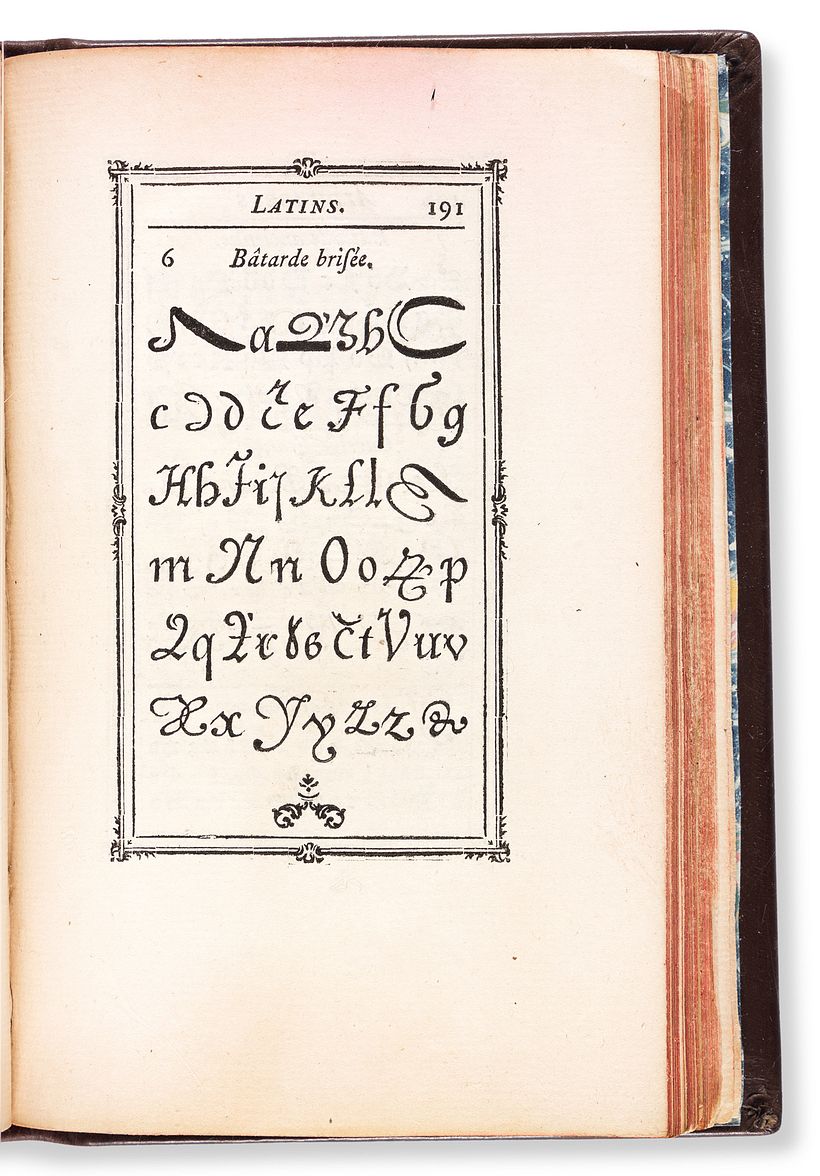 LATINS. 191
6 Bâtarde briſée.
A a B b C
c D d E e F f G g
H h I i j K L l M
m N n O o P p
Q q R r S s T t V u v
X x Y y Z z &